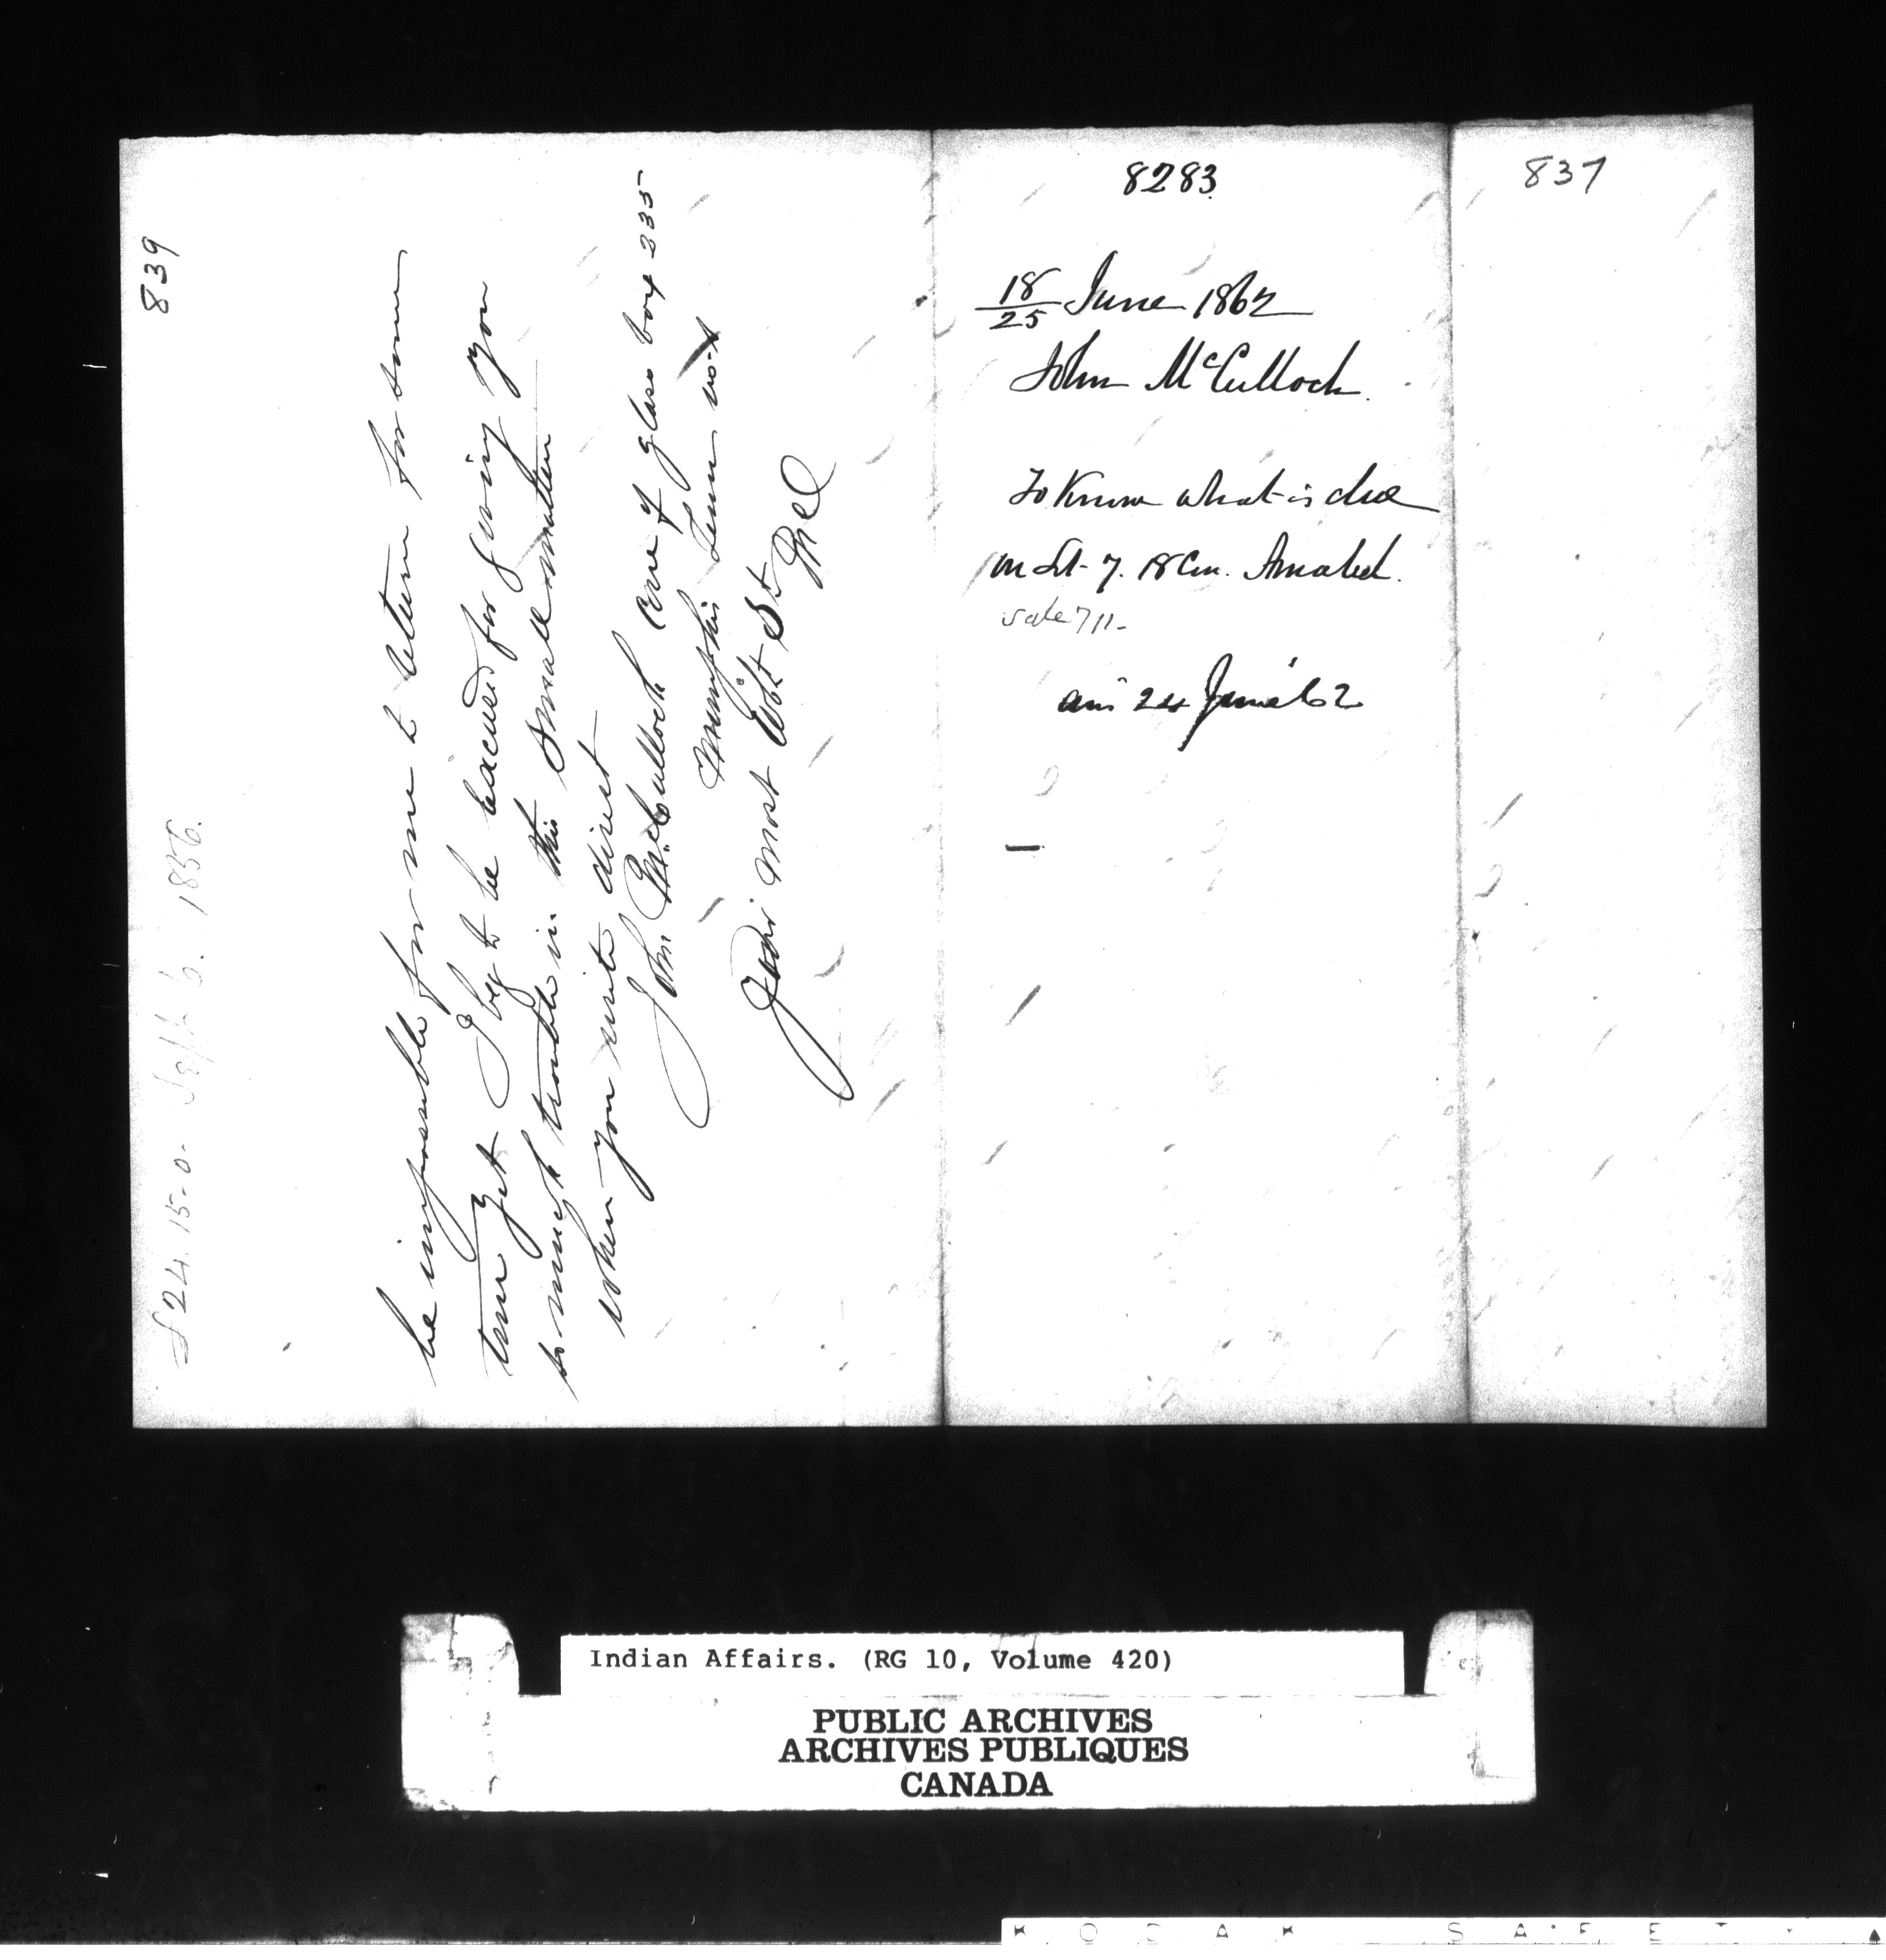 839
£24.15.0. Sept 6. 1856.
be impossible for me to return for some
time yet I beg to be excused for giving you
so much trouble in this small matter
when you write direct
John McCulloch Care of glass box 235
Memphis Tenn
Your most Obt St
McC
8283
18/25 June 1862
John McCulloch
To Know what is due
on Lt. 7. 18 Con. Amabel.
sale 711-
ansd 24 June 62
837
Indian Affairs. (RG 10, Volume 420)
PUBLIC ARCHIVES
ARCHIVES PUBLIQUES
CANADA
KODAK SAFETY